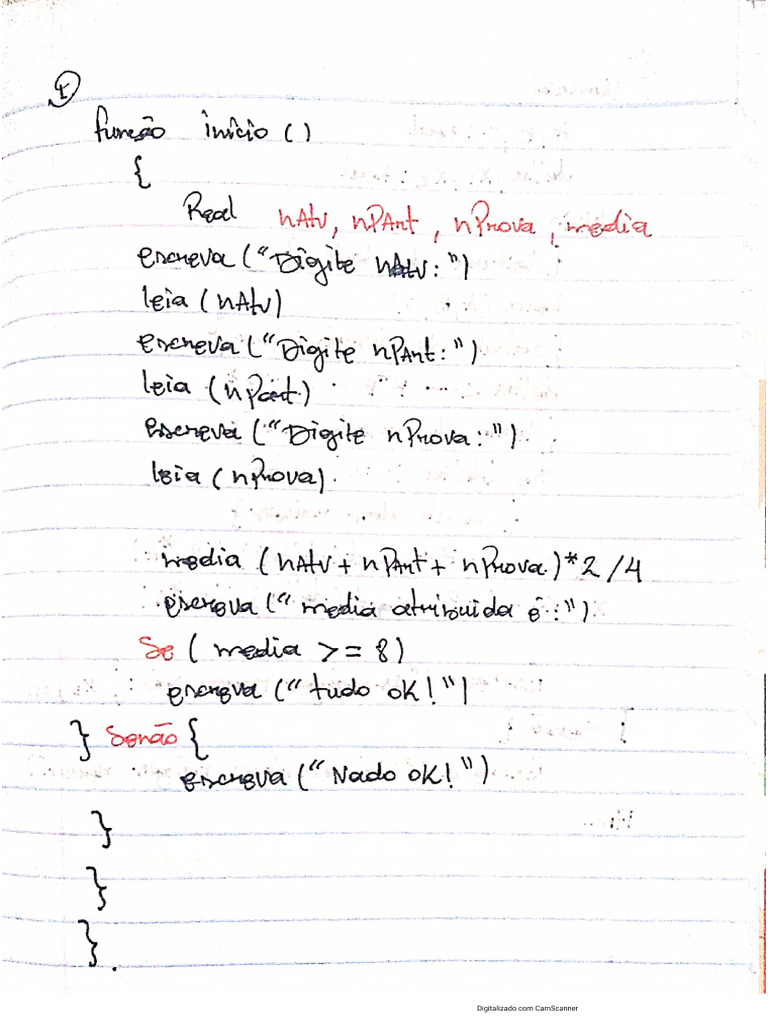 1
função início ()
{
Real nAtv, nPArt, nProva, media
escreva ("Digite nAtv:")
leia (nAtv)
escreva ("Digite nPArt:")
leia (nPart)
escreva ("Digite nProva:")
leia (nProva).
media (nAtv + nPArt + nProva)*2/4
escreva ("media atribuida é:")
Se ( media >= 8)
escreva ("tudo ok!")
} Senão {
escreva ("Nado ok!")
}
}
}.
Digitalizado com CamScanner